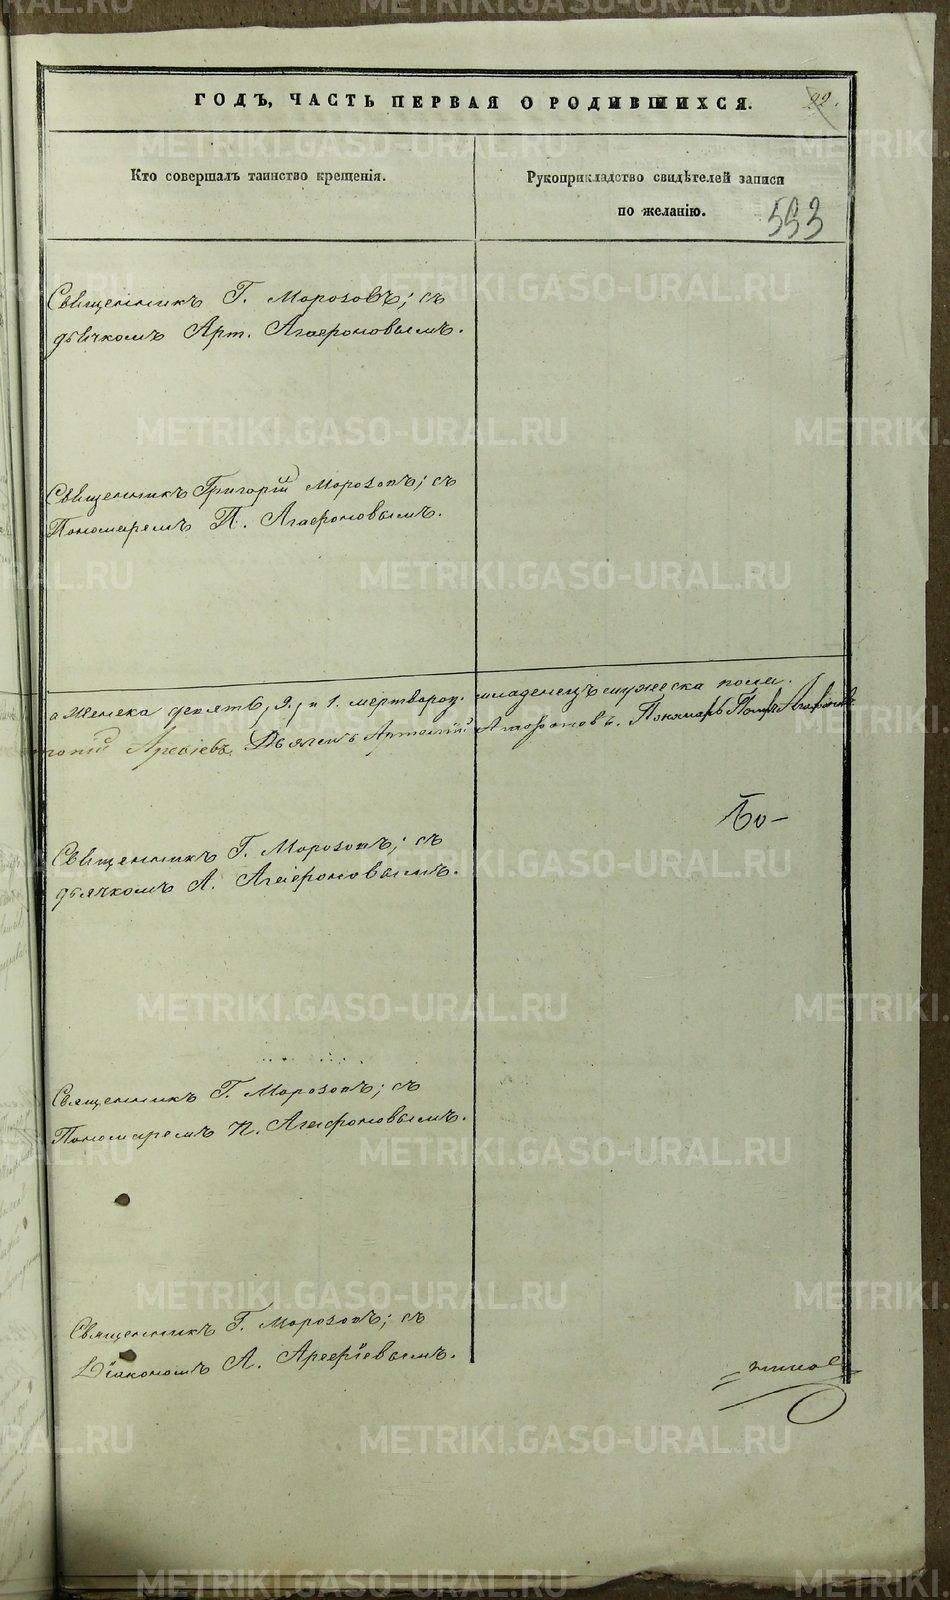 ГОДЪ, ЧАСТЬ ПЕРВАЯ О РОДИВШИХСЯ. 92.
Кто совершалъ таинство крещенія.
Рукоприкладство свидѣтелей записи
по желанію.
553
Священникъ Г. Морозовъ; съ
дьячкомъ Арт. Агафоновымъ.
Священникъ Григорій Морозовъ; съ
Пономаремъ П. Агафоновымъ.
а женска девять, 9., и 1. мертворож. младенецъ мужеска пола.
Арефіевъ. Дьячекъ Артемій Агафоновъ. Пономарь Агафоновъ
Священникъ Г. Морозовъ; съ
дьячкомъ А. Агафоновымъ.
Священникъ Г. Морозовъ; съ
Пономаремъ П. Агафоновымъ.
Священникъ Г. Морозовъ; съ
Діакономъ А. Арефіевымъ.
METRIKI.GASO-URAL.RU